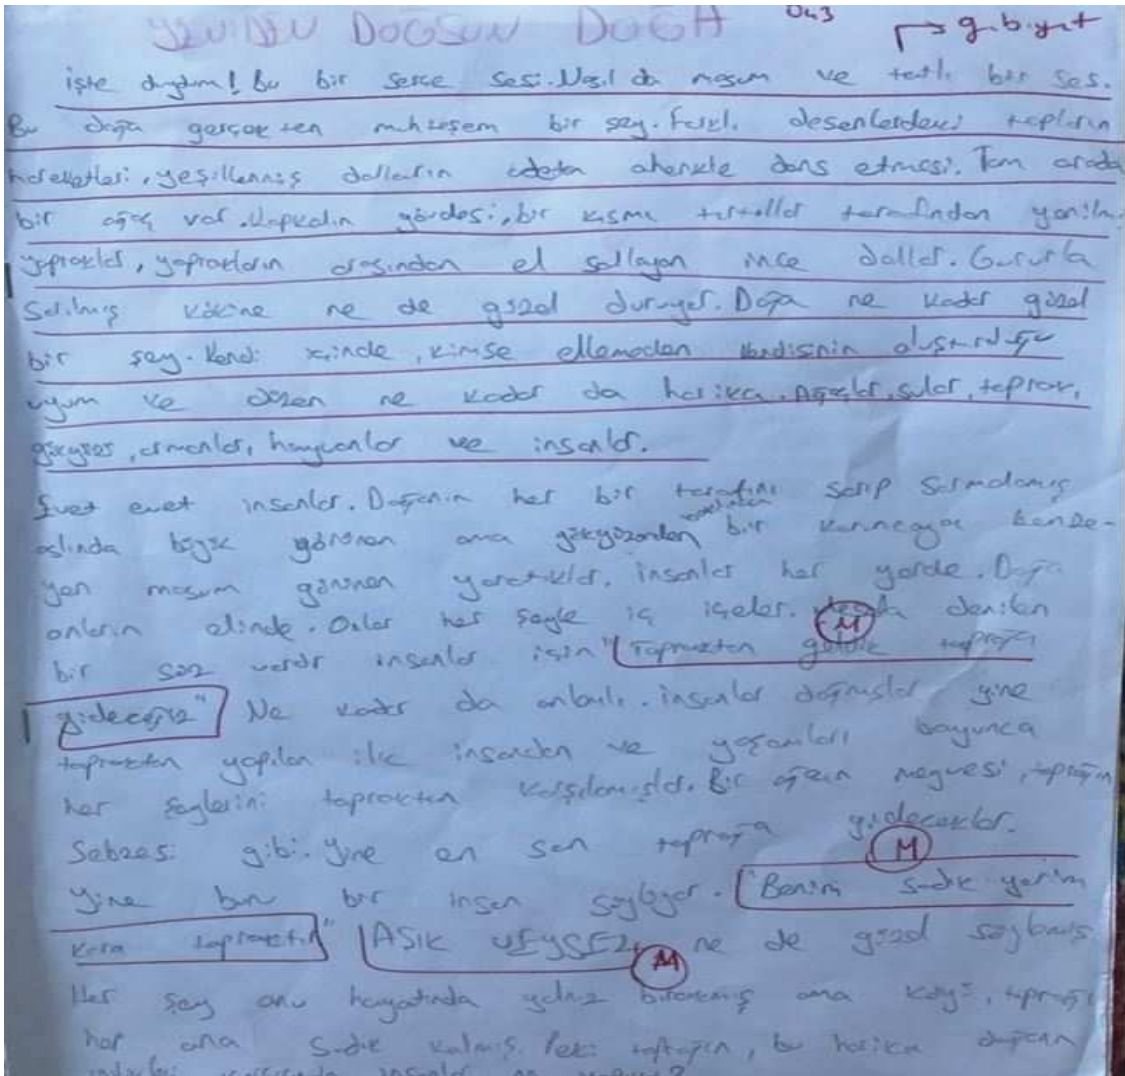 YENİDEN DOĞSUN DOĞA 043 → g.b.y.t
işte duydum! Bu bir serçe sesi. Nasıl da masum ve tatlı bir ses.
Bu doğa gerçekten muhteşem bir şey. Farklı desenlerdeki topların
hareketleri, yeşillenmiş dalların adeta ahenkle dans etmesi. Tam orada
bir ağaç var. Kapkalın gövdesi, bir kısmı tırtıllar tarafından yenilmiş
yapraklar, yaprakların arasından el sallayan ince dallar. Gururla
Sarılmış köküne ne de güzel duruyor. Doğa ne kadar güzel
bir şey. Kendi içinde, kimse ellemeden kendisinin oluşturduğu
uyum ve düzen ne kadar da harika. Ağaçlar, sular, toprak,
gökyüzü, ormanlar, hayvanlar ve insanlar.
Evet evet insanlar. Doğanın her bir tarafını sarıp sarmalamış
aslında büyük görünen ama gökyüzünden bakılınca bir karıncaya benze-
yen masum görünen yaratıklar. insanlar her yerde. Doğa
onların elinde. Onlar her şeyle iç içeler. M denilen
bir söz vardır insanlar için "Topraktan geldik toprağa
gideceğiz" Ne kadar da anlamlı. insanlar doğmuşlar yine
topraktan yapılan ilk insandan ve yaşamları boyunca
her şeylerini topraktan karşılamışlar. Bir ağacın meyvesi, toprağın
Sebzesi gibi. Yine en son toprağa gidecekler.
M
Yine bunu bir insan söylüyor. "Benim sadık yarim
kara topraktır" AŞIK VEYSEL M ne de güzel söylemiş
Her şey onu hayatında yalnız bırakmış ama köyü, toprağı
her ona sadık kalmış. Peki toprağın, bu harika doğanın
insanlar ne